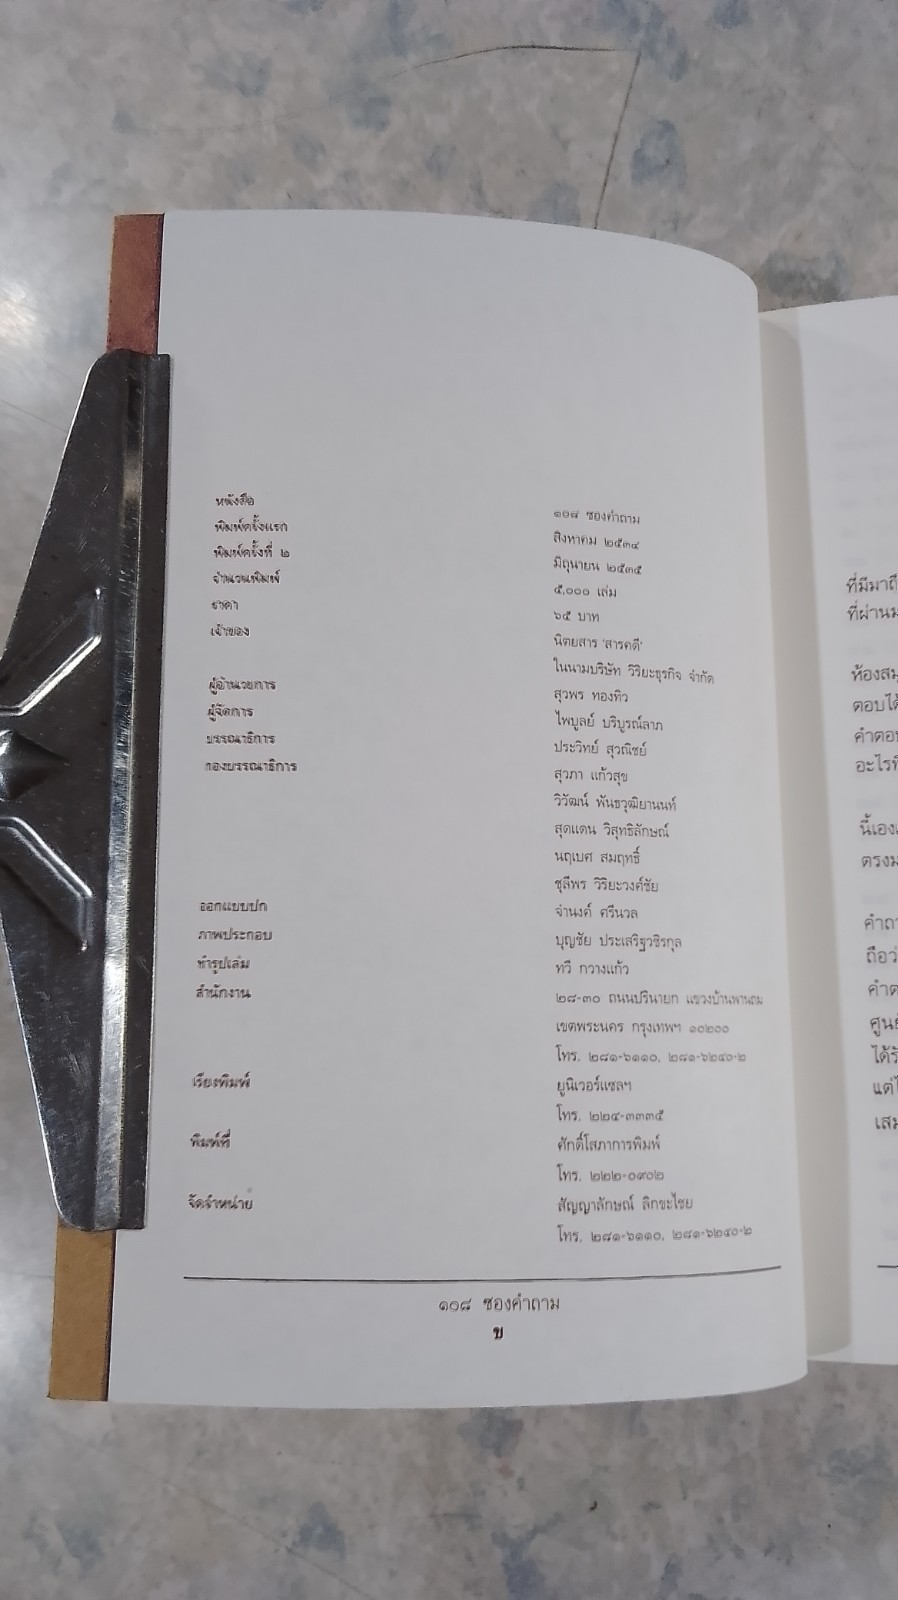 หนังสือ ๑๐๘ ซองคำถาม
พิมพ์ครั้งแรก สิงหาคม ๒๕๓๔
พิมพ์ครั้งที่ ๒ มิถุนายน ๒๕๓๕
จำนวนพิมพ์ ๕,๐๐๐ เล่ม
ราคา ๖๕ บาท
เจ้าของ นิตยสาร 'สารคดี'
ในนามบริษัท วิริยะธุรกิจ จำกัด
ผู้อำนวยการ สุวพร ทองทิว
ผู้จัดการ ไพบูลย์ บริบูรณ์ลาภ
บรรณาธิการ ประวิทย์ สุวณิชย์
กองบรรณาธิการ สุวภา แก้วสุข
วิวัฒน์ พันธวุฒิยานนท์
สุดแดน วิสุทธิลักษณ์
นฤเบศ สมฤทธิ์
ชุลีพร วิริยะวงศ์ชัย
ออกแบบปก จำนงค์ ศรีนวล
ภาพประกอบ บุญชัย ประเสริฐวชิรกุล
ทำรูปเล่ม ทวี กวางแก้ว
สำนักงาน ๒๘-๓๐ ถนนปรินายก แขวงบ้านพานถม
เขตพระนคร กรุงเทพฯ ๑๐๒๐๐
โทร. ๒๘๑-๖๑๑๐, ๒๘๑-๖๒๔๐-๒
เรียงพิมพ์ ยูนิเวอร์แซลฯ
โทร. ๒๒๔-๓๓๓๕
พิมพ์ที่ ศักดิ์โสภาการพิมพ์
โทร. ๒๒๒-๐๙๐๒
จัดจำหน่าย สัญญาลักษณ์ ลิกขะไชย
โทร. ๒๘๑-๖๑๑๐, ๒๘๑-๖๒๔๐-๒
๑๐๘ ซองคำถาม
ข
ที่มีมาถึ
ที่ผ่านม
ห้องสมุ
ตอบได้
คำตอบ
อะไรที่
นี้เอง
ตรงม
คำถา
ถือว่
คำต
ศูนย์
ได้รั
แต่ไ
เสม